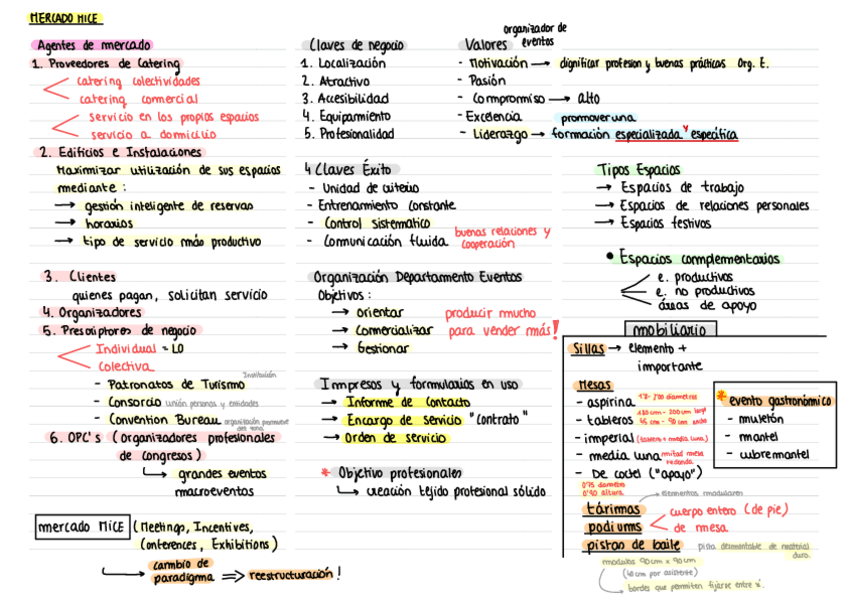 MERCADO MICE
Agentes de mercado
1. Proveedores de Catering
catering colectividades
catering comercial
servicio en los propios espacios
servicio a domicilio
2. Edificios e Instalaciones
Maximizar utilización de sus espacios
mediante :
→ gestión inteligente de reservas
→ horarios
→ tipo de servicio más productivo
3. Clientes
quienes pagan, solicitan servicio
4. Organizadores
5. Prescriptores de negocio
Individual = LO
Colectiva
Institución
- Patronatos de Turismo
- Consorcio unión personas y entidades
- Convention Bureau organización promueve
6. OPC's (organizadores profesionales
de congresos)
↳ grandes eventos
macroeventos
mercado MICE (Meetings, Incentives,
Conferences, Exhibitions)
→ cambio de
paradigma ⇒ reestructuración!
Claves de negocio
1. Localización
2. Atractivo
3. Accesibilidad
4. Equipamiento
5. Profesionalidad
4 Claves Éxito
- Unidad de criterio
- Entrenamiento constante
- Control sistematico
- Comunicación fluida buenas relaciones y
cooperación
Organización Departamento Eventos
Objetivos :
→ orientar
→ Comercializar
→ Gestionar
producir mucho
para vender más!
Impresos y formularios en uso
→ Informe de contacto
→ Encargo de servicio "contrato"
→ Orden de servicio
* Objetivo profesionales
↳ creación tejido profesional sólido
organizador de
eventos
Valores
- Motivación → dignificar profesion y buenas prácticas Org. E.
- Pasión
- Compromiso → alto
- Excelencia
promover una
- Liderazgo → formación especializada y específica
Tipos Espacios
→ Espacios de trabajo
→ Espacios de relaciones personales
→ Espacios festivos
• Espacios complementarios
e. productivos
e. no productivos
áreas de apoyo
mobiliario
Sillas → elemento +
importante
Mesas
- aspirina
- tableros 180 cm - 200 cm
- imperial (tablero + media luna)
- media luna mitad mesa
redonda
- De coctel ("apoyo")
0'75 diametro
0'90 altura
* evento gastronómico
- muletón
- mantel
- cubremantel
elementos modulares
tárimas
podiums
cuerpo entero (de pie)
de mesa
pistas de baile pista desmontable de material
duro.
modulos 90cm x 90cm
(40 cm por asistente)
bordes que permiten fijarse entre sí.